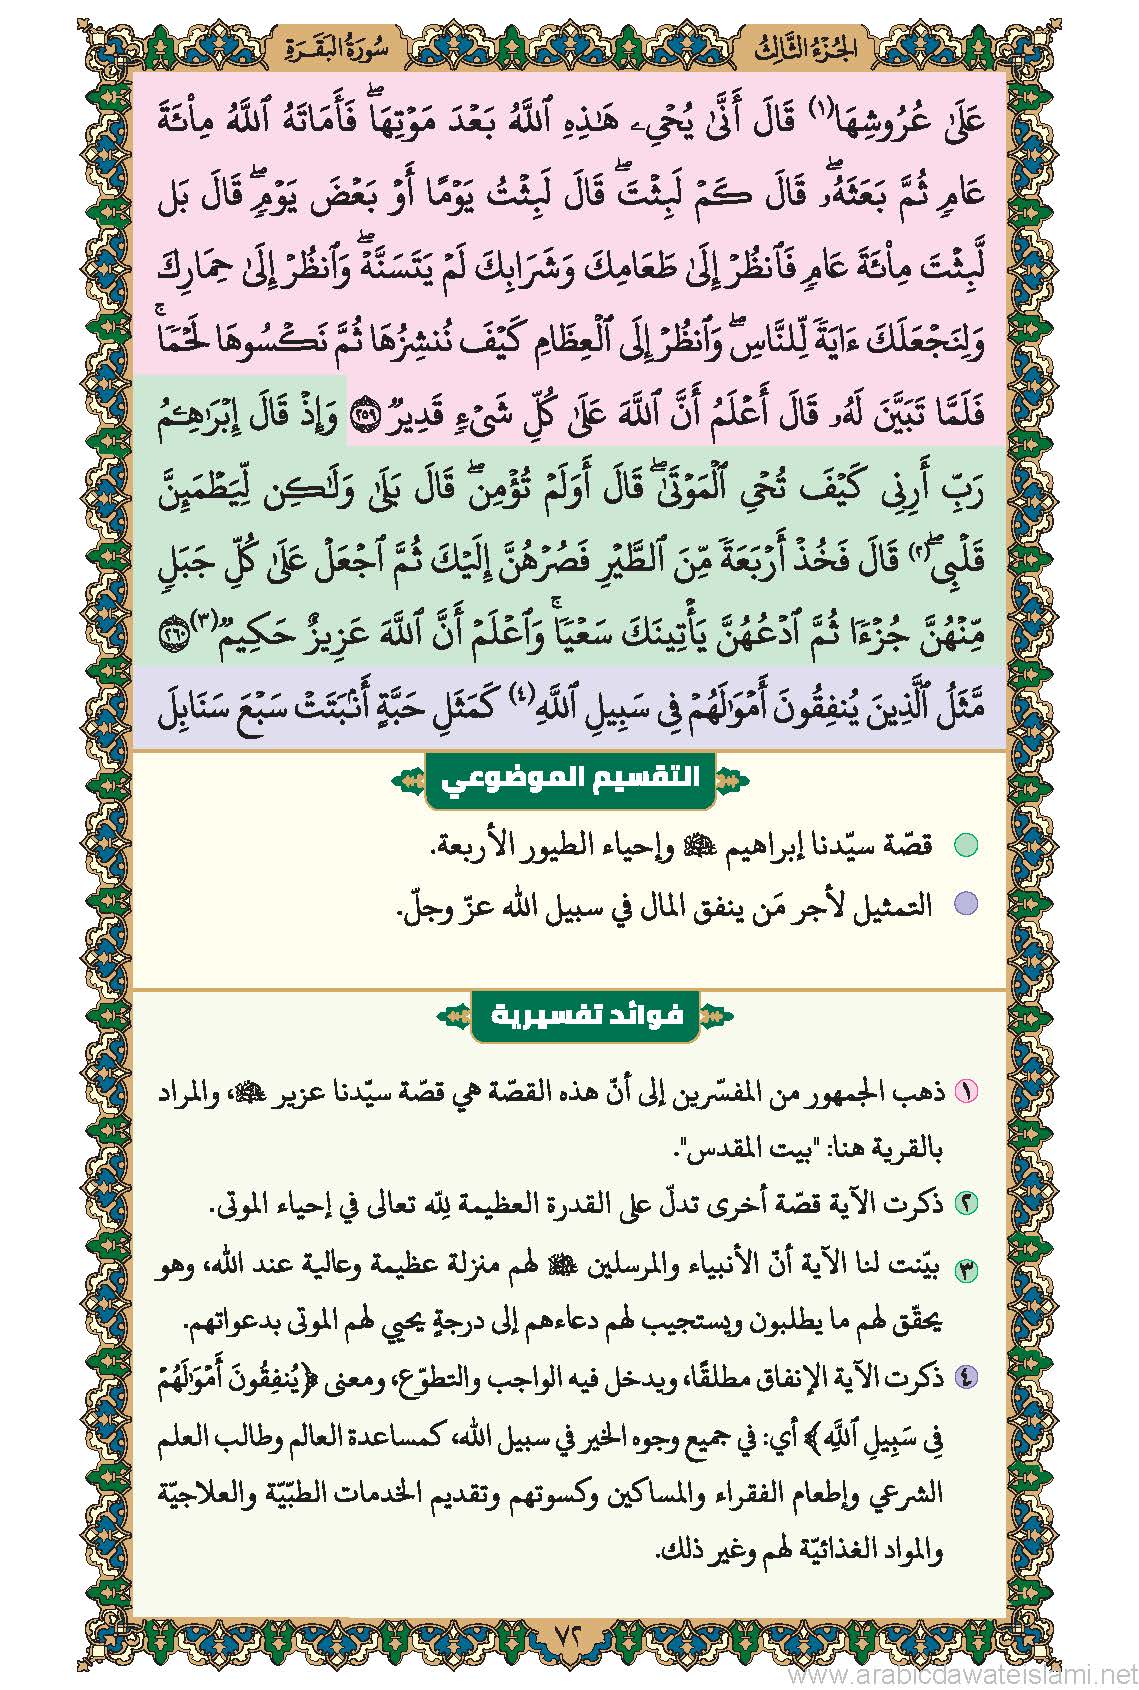 الجُزْءُ الثَّالِثُ
سُورَةُ البَقَرَةِ
عَلَىٰ عُرُوشِهَا(١) قَالَ أَنَّىٰ يُحْيِۦ هَٰذِهِ ٱللَّهُ بَعْدَ مَوْتِهَاۖ فَأَمَاتَهُ ٱللَّهُ مِاْئَةَ
عَامٖ ثُمَّ بَعَثَهُۥۖ قَالَ كَمْ لَبِثْتَۖ قَالَ لَبِثْتُ يَوْمًا أَوْ بَعْضَ يَوْمٖۖ قَالَ بَل
لَّبِثْتَ مِاْئَةَ عَامٖ فَٱنظُرْ إِلَىٰ طَعَامِكَ وَشَرَابِكَ لَمْ يَتَسَنَّهْۖ وَٱنظُرْ إِلَىٰ حِمَارِكَ
وَلِنَجْعَلَكَ ءَايَةٗ لِّلنَّاسِۖ وَٱنظُرْ إِلَى ٱلْعِظَامِ كَيْفَ نُنشِزُهَا ثُمَّ نَكْسُوهَا لَحْمٗاۚ
فَلَمَّا تَبَيَّنَ لَهُۥ قَالَ أَعْلَمُ أَنَّ ٱللَّهَ عَلَىٰ كُلِّ شَيْءٖ قَدِيرٞ ٢٥٩ وَإِذْ قَالَ إِبْرَٰهِـۧمُ
رَبِّ أَرِنِي كَيْفَ تُحْيِ ٱلْمَوْتَىٰۖ قَالَ أَوَلَمْ تُؤْمِنۖ قَالَ بَلَىٰ وَلَٰكِن لِّيَطْمَئِنَّ
قَلْبِيۖ(٢) قَالَ فَخُذْ أَرْبَعَةٗ مِّنَ ٱلطَّيْرِ فَصُرْهُنَّ إِلَيْكَ ثُمَّ ٱجْعَلْ عَلَىٰ كُلِّ جَبَلٖ
مِّنْهُنَّ جُزْءٗا ثُمَّ ٱدْعُهُنَّ يَأْتِينَكَ سَعْيٗاۚ وَٱعْلَمْ أَنَّ ٱللَّهَ عَزِيزٌ حَكِيمٞ(٣) ٢٦٠
مَّثَلُ ٱلَّذِينَ يُنفِقُونَ أَمْوَٰلَهُمْ فِي سَبِيلِ ٱللَّهِ(٤) كَمَثَلِ حَبَّةٍ أَنۢبَتَتْ سَبْعَ سَنَابِلَ
التقسيم الموضوعي
قصّة سيّدنا إبراهيم ﷺ وإحياء الطيور الأربعة.
التمثيل لأجر مَن ينفق المال في سبيل الله عزّ وجلّ.
فوائد تفسيرية
١ ذهب الجمهور من المفسّرين إلى أنّ هذه القصّة هي قصّة سيّدنا عزير ﷺ، والمراد
بالقرية هنا: "بيت المقدس".
٢ ذكرت الآية قصّة أخرى تدلّ على القدرة العظيمة لله تعالى في إحياء الموتى.
٣ بيّنت لنا الآية أنّ الأنبياء والمرسلين ﷺ لهم منزلة عظيمة وعالية عند الله، وهو
يحقّق لهم ما يطلبون ويستجيب لهم دعاءهم إلى درجةٍ يحيي لهم الموتى بدعواتهم.
٤ ذكرت الآية الإنفاق مطلقًا، ويدخل فيه الواجب والتطوّع، ومعنى ﴿يُنفِقُونَ أَمْوَٰلَهُمْ
فِي سَبِيلِ ٱللَّهِ﴾ أي: في جميع وجوه الخير في سبيل الله، كمساعدة العالم وطالب العلم
الشرعي وإطعام الفقراء والمساكين وكسوتهم وتقديم الخدمات الطبّيّة والعلاجيّة
والمواد الغذائيّة لهم وغير ذلك.
٧٢
www.arabicdawateislami.net